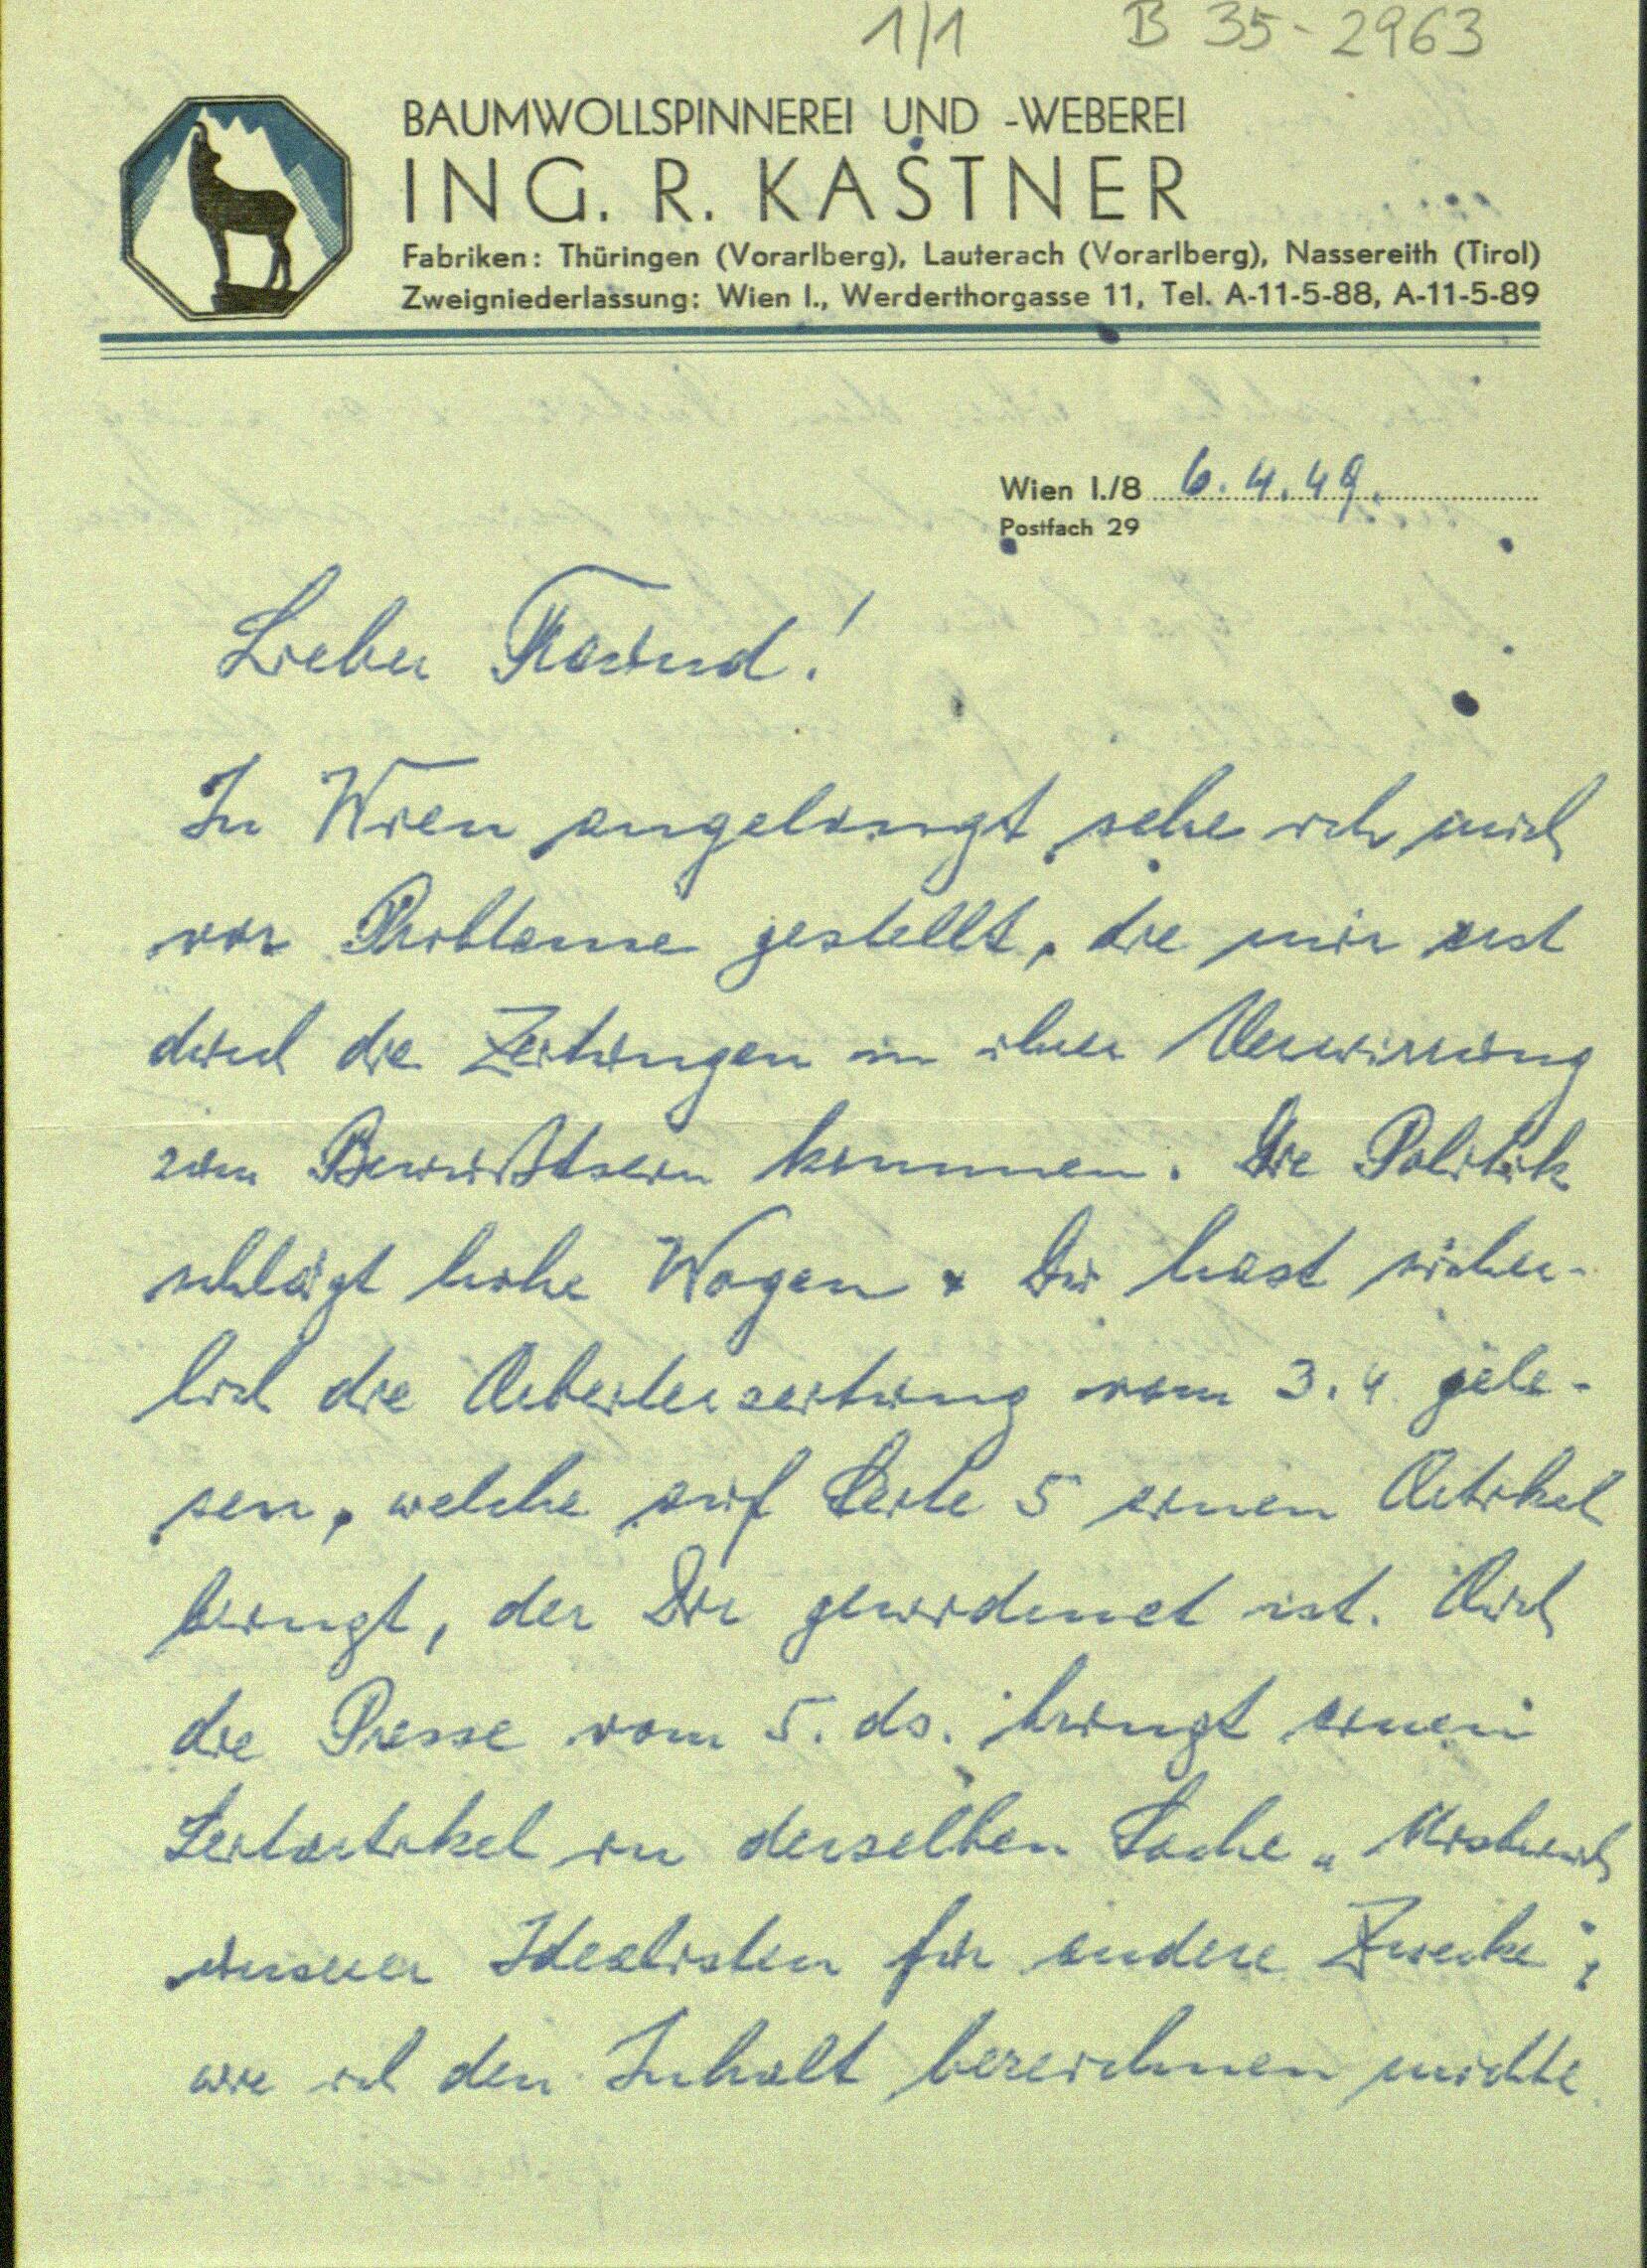 1/1 B 35-2963
BAUMWOLLSPINNEREI UND -WEBEREI
ING. R. KASTNER
Fabriken: Thüringen (Vorarlberg), Lauterach (Vorarlberg), Nassereith (Tirol)
Zweigniederlassung: Wien I., Werderthorgasse 11, Tel. A-11-5-88, A-11-5-89
Wien I./8 6.4.49.
Postfach 29
Lieber Freund!
In Wien angelangt sehe ich mich
vor Probleme gestellt, die mir erst
durch die Zeitungen in ihrer Verwirrung
zum Bewußtsein kommen. Die Politik
schlägt hohe Wogen & Du hast sicher-
lich die Arbeiterzeitung vom 3.4. gele-
sen, welche auf Seite 5 einen Artikel
bringt, der Dir gewidmet ist. Auch
die Presse vom 5. ds. bringt einen
Leitartikel in derselben Sache „Missbrauch
unserer Idealisten für andere Zwecke",
wie ich den Inhalt bezeichnen möchte.